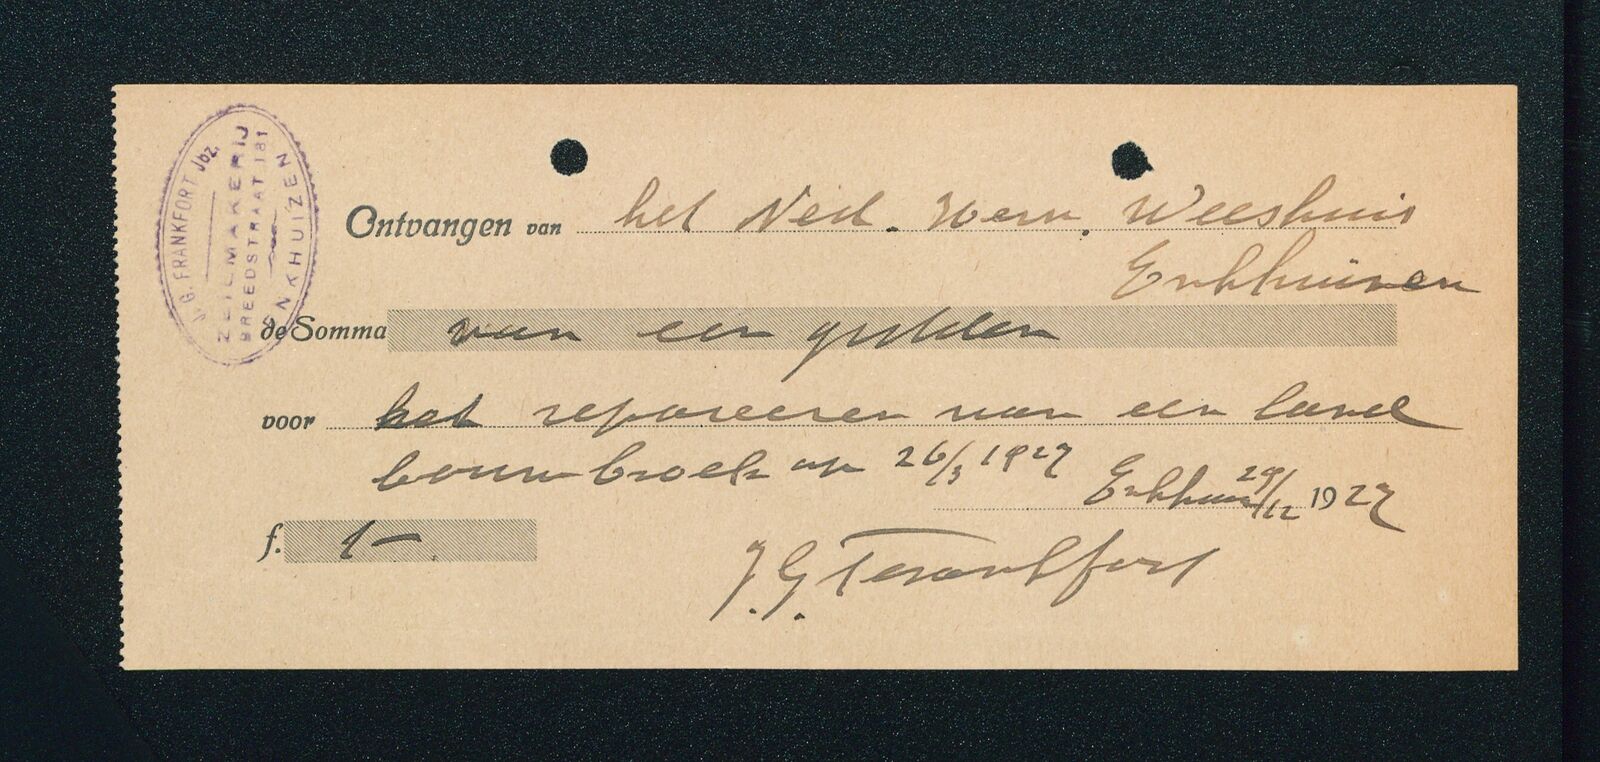 J. G. FRANKFORT Jbz.
ZEILMAKERIJ
BREEDSTRAAT 181
ENKHUIZEN
Ontvangen van het Ned. Herv. Weeshuis
Enkhuizen
de Somma van een gulden
voor het repareeren van een land
bouwbroek op 26/3 1927
Enkhuiz 29/12 1927
f. 1 —.
J. G. Frankfort